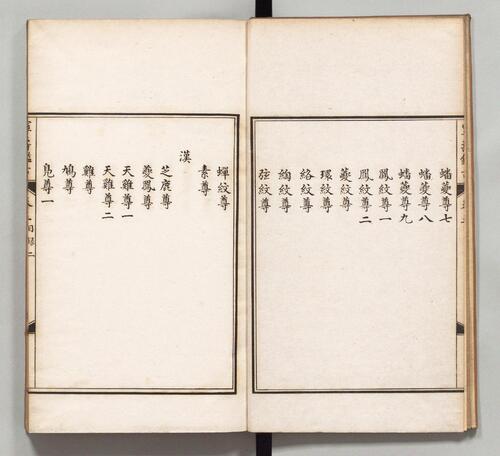 蟠夔尊七
蟠夔尊八
蟠夔尊九
鳳紋尊一
鳳紋尊二
夔紋尊
環紋尊
絡紋尊
綯紋尊
弦紋尊
蟬紋尊
素尊
漢
芝鹿尊
夔鳳尊
天雞尊一
天雞尊二
雞尊
鳩尊
鳧尊一
目錄二